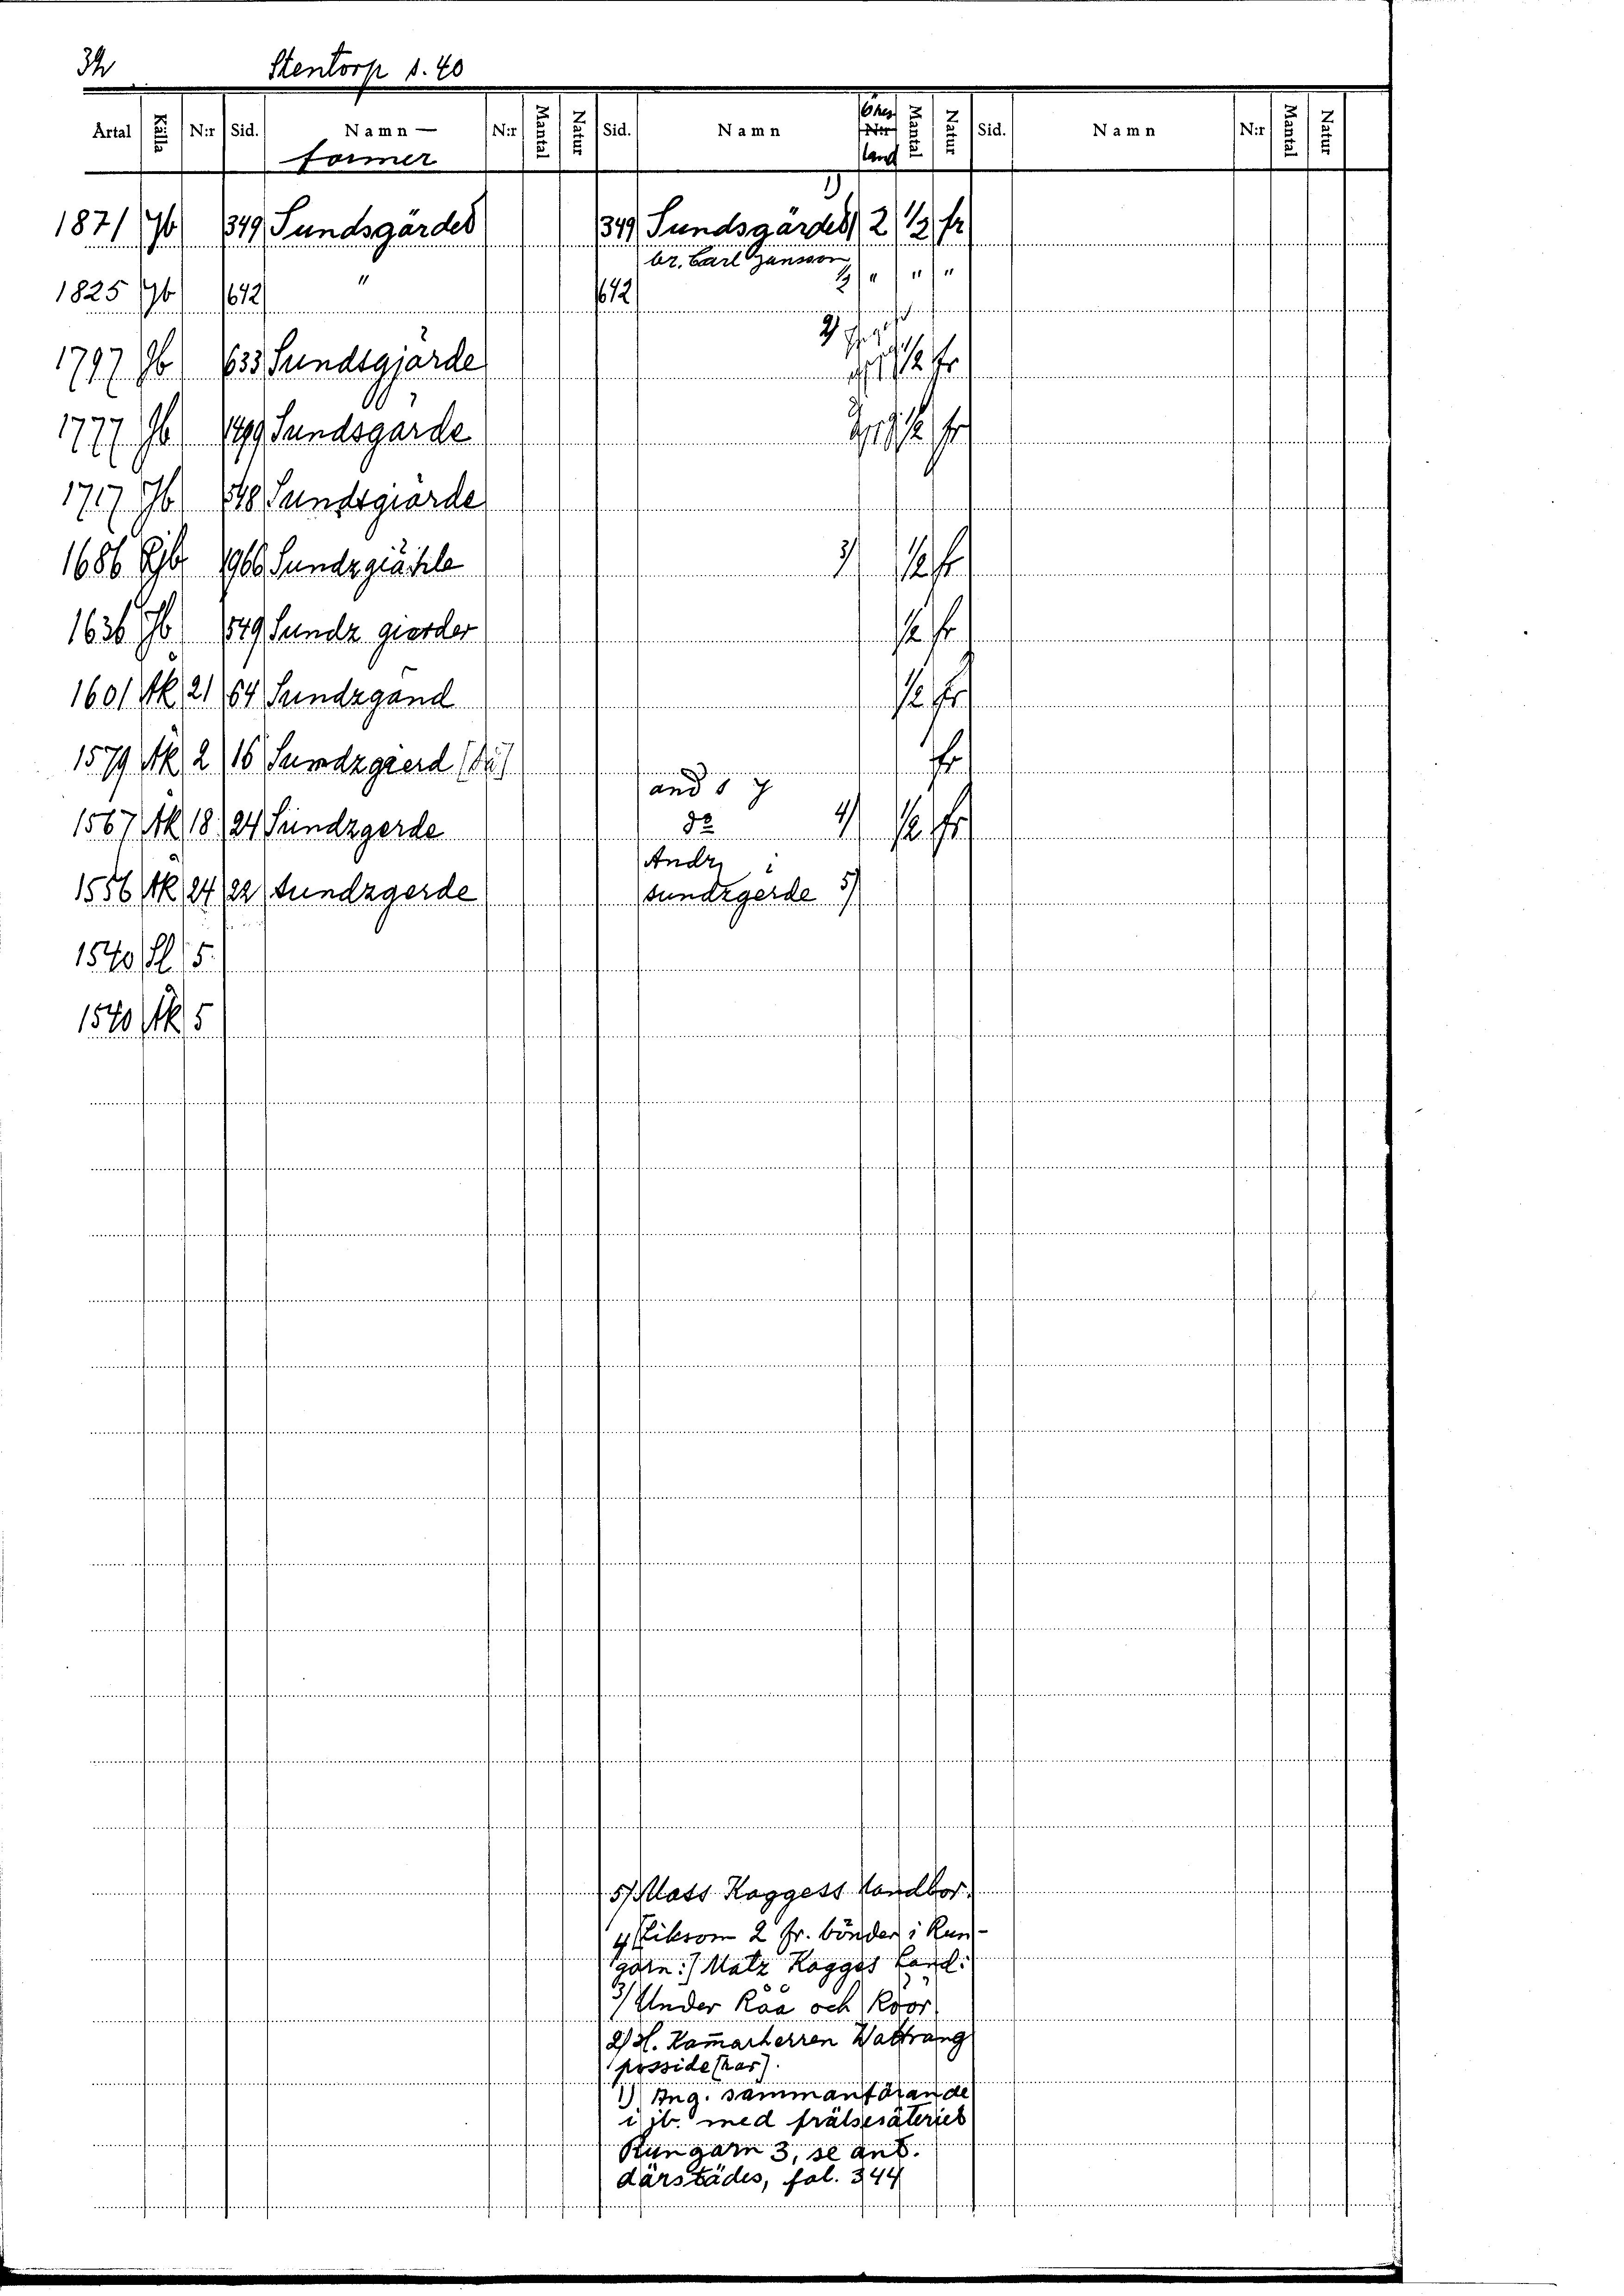 34 Stentorp s. 40
Årtal Källa N:r Sid. Namn— N:r Mantal Natur Sid. Namn Öres Mantal Natur Sid. Namn N:r Mantal Natur
former land
1)
1871 Jb 349 Sundsgärdet 349 Sundsgärdet 2 1/2 fr
br. Carl Jansson
1825 Jb 642 " 642 1/2 " " "
2)
1797 Jb 633 Sundsgjärde 1/2 fr
1777 Jb 1499 Sundsgärde 1/2 fr
1717 Jb 548 Sundsgiärde
1686 1966 3) 1/2 fr
1636 Jb 549 Sundz gierder 1/2 fr
1601 Äk 21 64 Sundzgånd 1/2 fr
1579 Äk 2 16 Sundzgierd fr
and s
1567 Äk 18 24 Sundzgerde do 4) 1/2 fr
Andr i
1556 Äk 24 22 sundzgerde sundzgerde 5)
1540 Sl 5
1540 Äk 5
5) Mats Kaggess landbor.
4) Liksom 2 fr. bönder i Run-
garn :) Matz Kagges Land:
3) Under Råå och Röör
2) H. Kam̄arherren Wattrang
posside(rar).
1) Ang. sammanförande
i jb. med frälsesäteriet
Rungarn 3, se ant.
därstädes, fol. 344